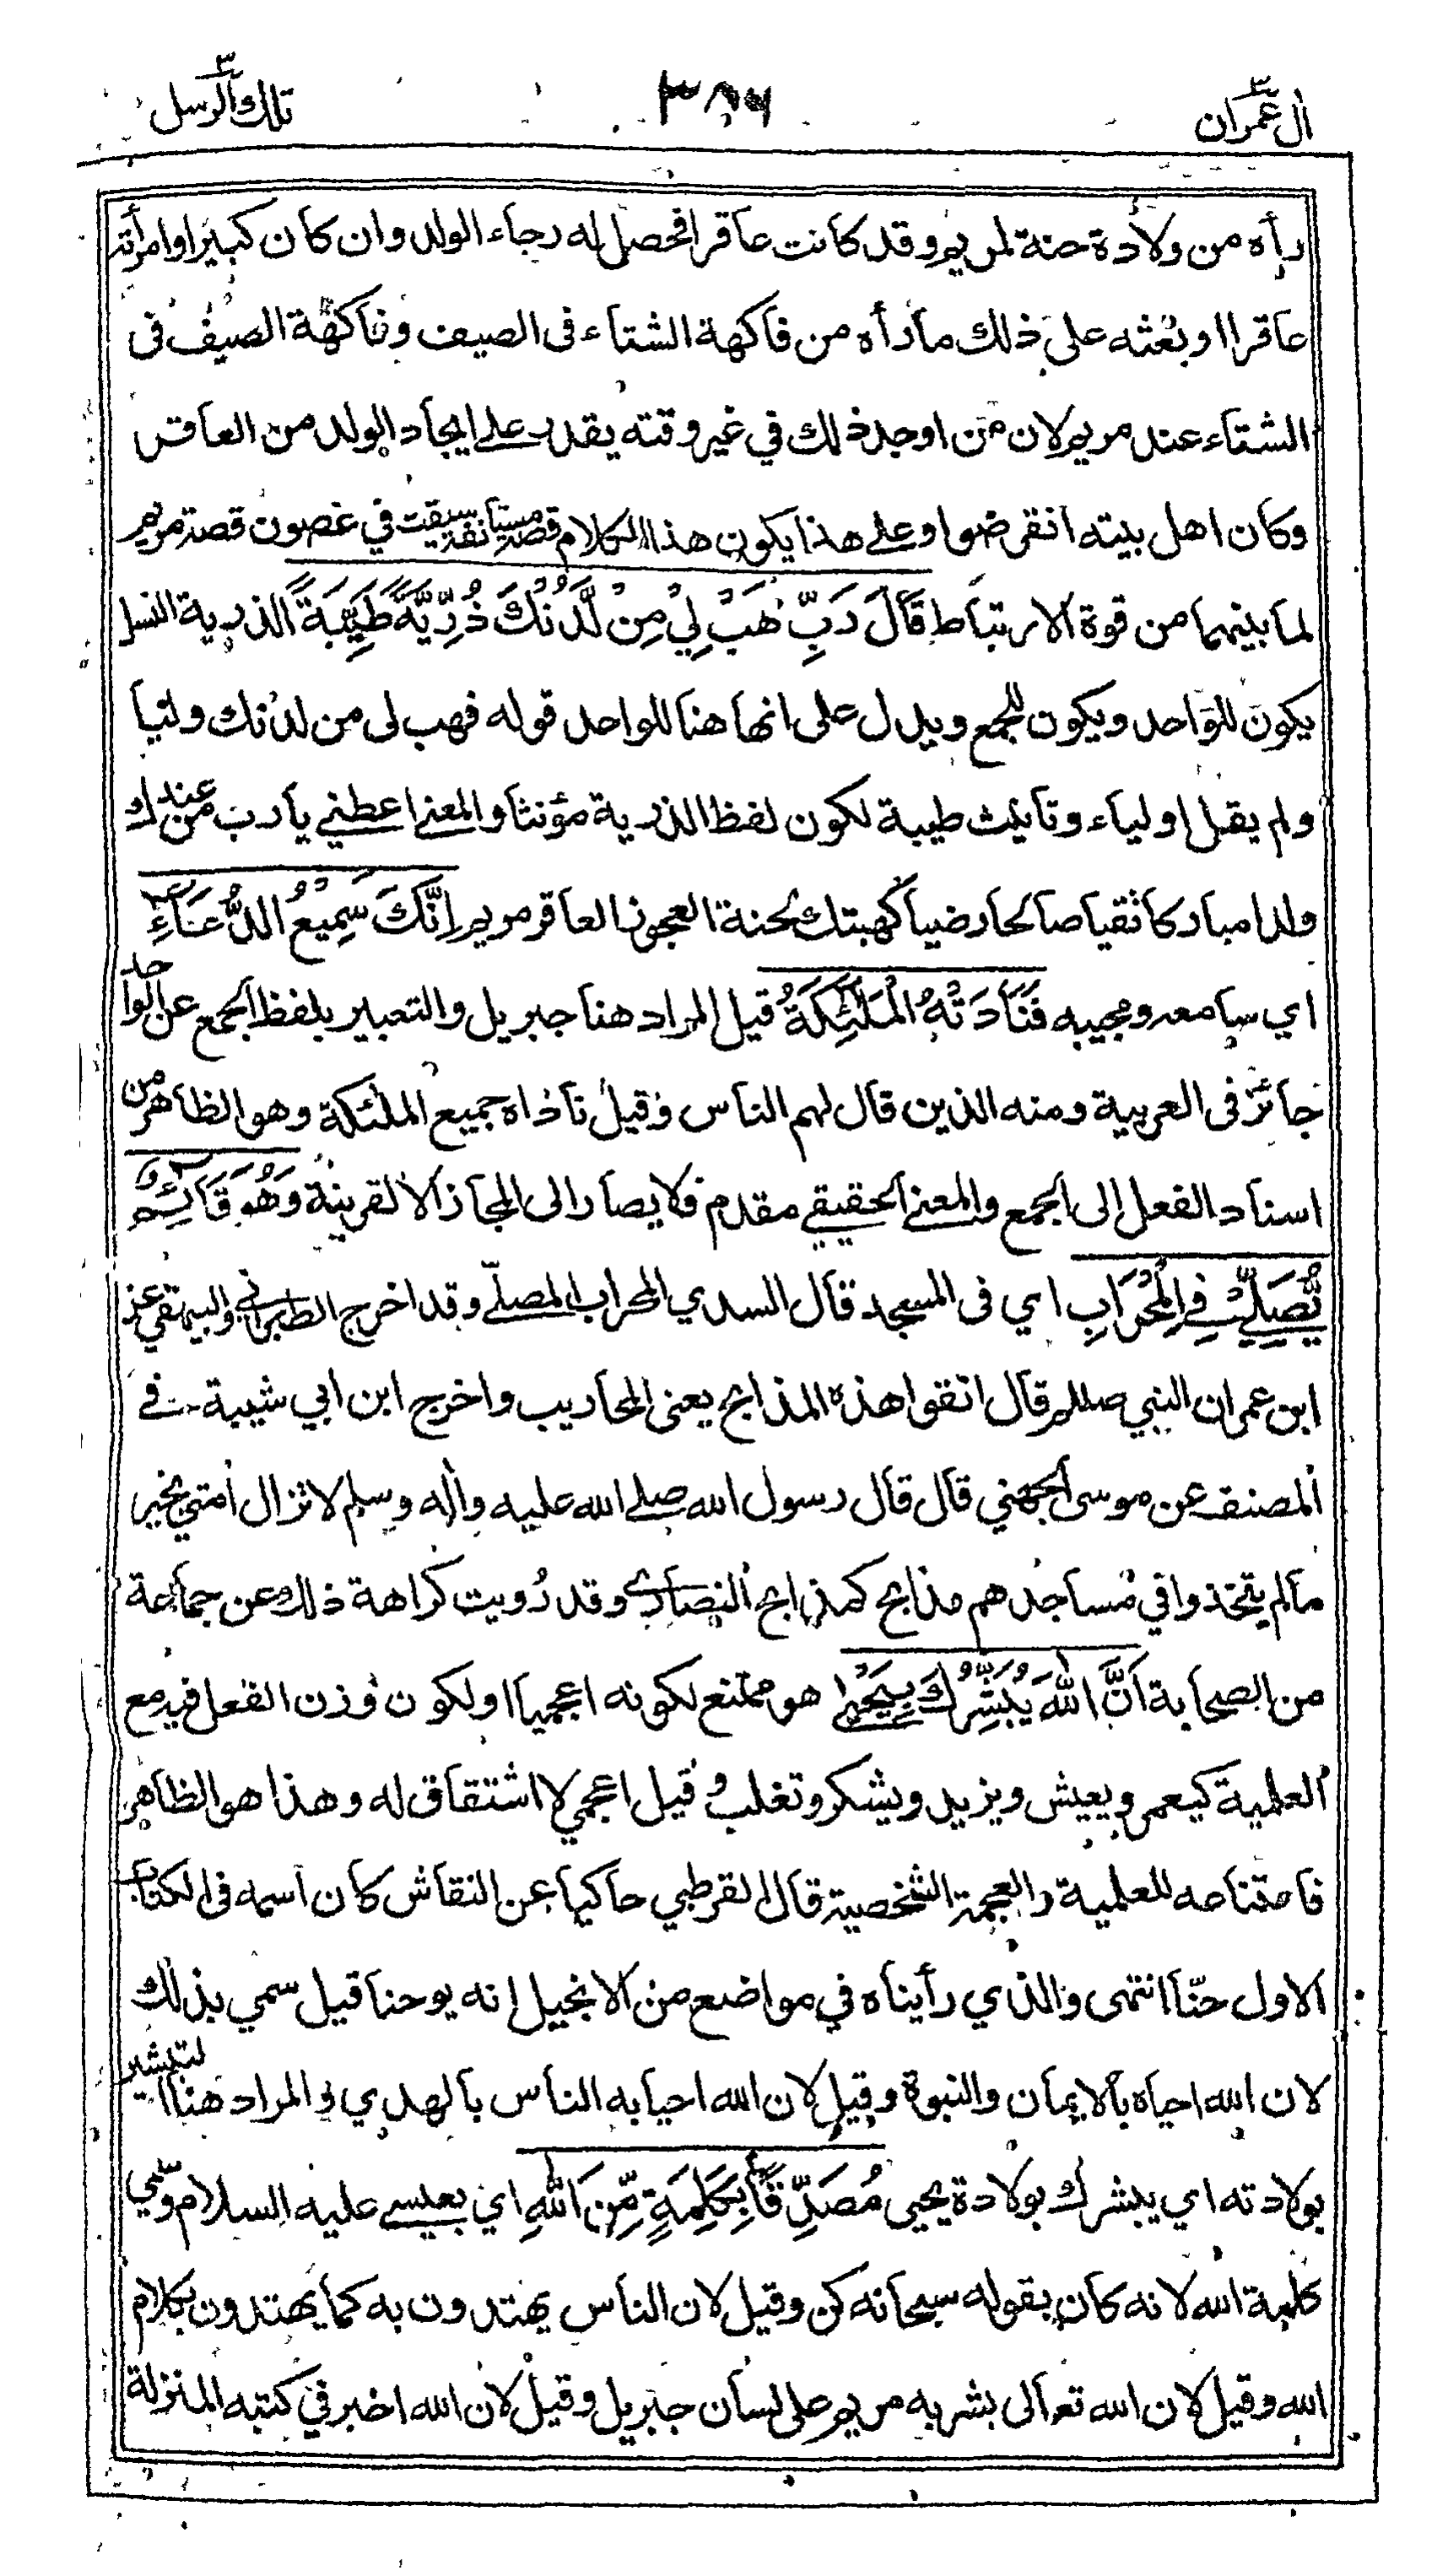 اٰل عمران ٣
٣٨٦
تلك الرسل ٣
رأه من ولادة حنة لمريم وقد كانت عاقرا فحصل له رجاء الولد وان كان كبيرا وامرأته
عاقرا او بعثه على ذلك ما رأه من فاكهة الشتاء فى الصيف وفاكهة الصيف فى
الشتاء عند مريم لان من اوجد ذلك في غير وقته يقدر على ايجاد الولد من العاقر
وكان اهل بيته انقرضوا وعلى هذا يكون هذا الكلام قصة مستأنفة سيقت في غصون قصة مريم
لما بينهما من قوة الارتباط قَالَ رَبِّ هَبْ لِيْ مِنْ لَّدُنْكَ ذُرِّيَّةً طَيِّبَةً الذرية النسل
يكون للواحد ويكون للجمع ويدل على انها هنا للواحد قوله فهب لى من لدنك وليا
ولم يقل اولياء وتأنيث طيبة لكون لفظ الذرية مؤنثا والمعنى اعطني يا رب من عندك
ولدا مباركا تقيا صالحا رضيا كهبتك لحنة العجوز العاقر مريم اِنَّكَ سَمِيْعُ الدُّعَآءِ
اي سامعه ومجيبه فَنَادَتْهُ الْمَلٰٓئِكَةُ قيل المراد هنا جبريل والتعبير بلفظ الجمع عن الواحد
جائز فى العربية ومنه الذين قال لهم الناس وقيل ناداه جميع الملئكة وهو الظاهر من
اسناد الفعل الى الجمع والمعنى الحقيقي مقدم فلا يصار الى المجاز الا لقرينة وَهُوَ قَآئِمٌ
يُّصَلِّيْ فِي الْمِحْرَابِ اي فى المسجد قال السدي المحراب المصلّى وقد اخرج الطبراني والبيهقي عن
ابن عمر ان النبي صللم قال اتقوا هذه المذابح يعنى المحاريب واخرج ابن ابي شيبة في
المصنف عن موسى الجهني قال قال رسول الله صلى الله عليه واٰله وسلم لا تزال أمتي بخير
مالم يتخذوا في مساجدهم مذابح كمذابح النصارى وقد رُويت كراهة ذلك عن جماعة
من الصحابة اَنَّ اللّٰهَ يُبَشِّرُكَ بِيَحْيٰى هو ممتنع لكونه اعجميا او لكون وزن الفعل فيه مع
العلمية كيعمر ويعيش ويزيد ويشكر وتغلب وقيل اعجمي لا اشتقاق له وهذا هو الظاهر
فامتناعه للعلمية والعجمة الشخصية قال القرطبي حاكيا عن النقاش كان اسمه فى الكتاب
الاول حنّا انتهى والذي رأيناه في مواضع من الانجيل انه يوحنا قيل سمي بذلك
لان الله احياه بالايمان والنبوة وقيل لان الله احيا به الناس بالهدي والمراد هنا التبشير
بولادته اي يبشرك بولادة يحيى مُصَدِّقًاۢ بِكَلِمَةٍ مِّنَ اللّٰهِ اي بعيسى عليه السلام وسمي
كلمة الله لانه كان بقوله سبحانه كن وقيل لان الناس يهتدون به كما يهتدون بكلام
الله وقيل لان الله تعالى بشر به مريم على لسان جبريل وقيل لان الله اخبر في كتبه المنزلة